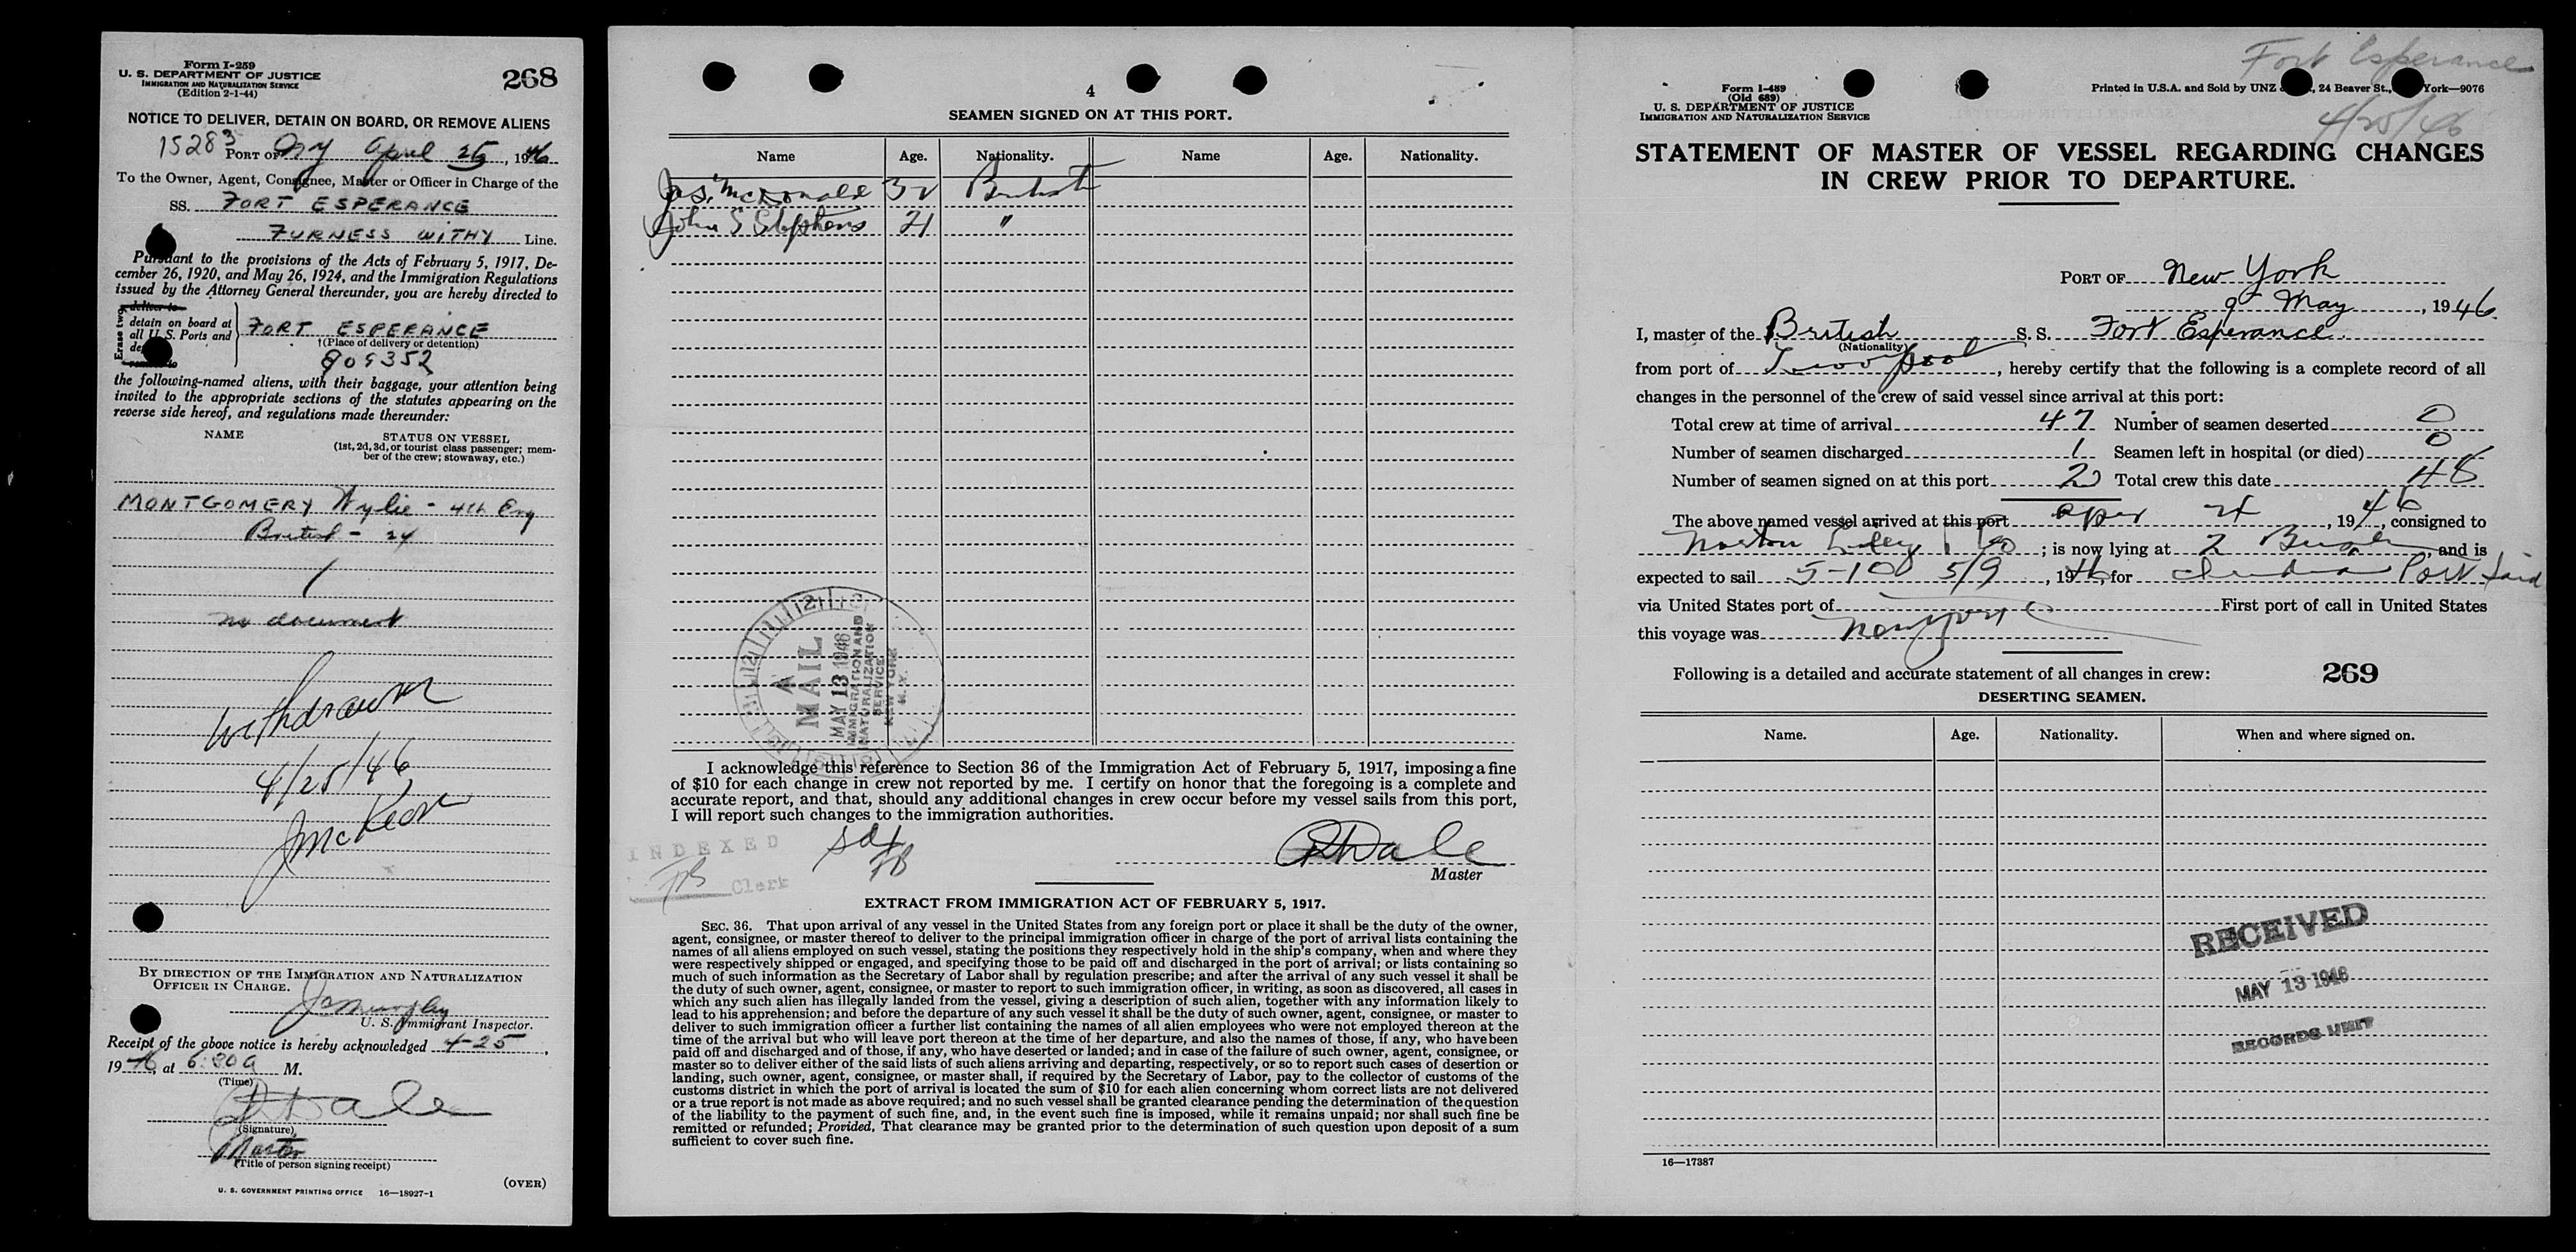 Form I-259
U. S. DEPARTMENT OF JUSTICE
IMMIGRATION AND NATURALIZATION SERVICE
(Edition 2-1-44)
268
NOTICE TO DELIVER, DETAIN ON BOARD, OR REMOVE ALIENS
15283
PORT OF NY April 25, 1946
To the Owner, Agent, Consignee, Master or Officer in Charge of the
SS. FORT ESPERANCE
FURNESS WITHY Line.
Pursuant to the provisions of the Acts of February 5, 1917, De-
cember 26, 1920, and May 26, 1924, and the Immigration Regulations
issued by the Attorney General thereunder, you are hereby directed to
Erase two
deliver to
detain on board at
all U.S. Ports and
remove to
FORT ESPERANCE
†(Place of delivery or detention)
809352
the following-named aliens, with their baggage, your attention being
invited to the appropriate sections of the statutes appearing on the
reverse side hereof, and regulations made thereunder:
NAME
STATUS ON VESSEL
(1st, 2d, 3d, or tourist class passenger; mem-
ber of the crew; stowaway, etc.)
MONTGOMERY Wylie - 4th Eng
British - 24
1
no document
Withdrawn
4/25/46
J McKeon
BY DIRECTION OF THE IMMIGRATION AND NATURALIZATION
OFFICER IN CHARGE.
U. S. Immigrant Inspector.
Receipt of the above notice is hereby acknowledged 4-25,
1946, at 6:30a M.
(Time)
Dale
(Signature)
Master
(Title of person signing receipt)
(OVER)
U. S. GOVERNMENT PRINTING OFFICE 16—18927-1
4
SEAMEN SIGNED ON AT THIS PORT.
Name Age. Nationality. Name Age. Nationality.
Jas. McDonald 32 British
John S Stephens 21 "
A
MAIL
MAY 13 1946
IMMIGRATION AND
NATURALIZATION
SERVICE
NEW YORK
N. Y.
I acknowledge this reference to Section 36 of the Immigration Act of February 5, 1917, imposing a fine
of $10 for each change in crew not reported by me. I certify on honor that the foregoing is a complete and
accurate report, and that, should any additional changes in crew occur before my vessel sails from this port,
I will report such changes to the immigration authorities.
INDEXED
Clerk
Dale
Master
EXTRACT FROM IMMIGRATION ACT OF FEBRUARY 5, 1917.
SEC. 36. That upon arrival of any vessel in the United States from any foreign port or place it shall be the duty of the owner,
agent, consignee, or master thereof to deliver to the principal immigration officer in charge of the port of arrival lists containing the
names of all aliens employed on such vessel, stating the positions they respectively hold in the ship's company, when and where they
were respectively shipped or engaged, and specifying those to be paid off and discharged in the port of arrival; or lists containing so
much of such information as the Secretary of Labor shall by regulation prescribe; and after the arrival of any such vessel it shall be
the duty of such owner, agent, consignee, or master to report to such immigration officer, in writing, as soon as discovered, all cases in
which any such alien has illegally landed from the vessel, giving a description of such alien, together with any information likely to
lead to his apprehension; and before the departure of any such vessel it shall be the duty of such owner, agent, consignee, or master to
deliver to such immigration officer a further list containing the names of all alien employees who were not employed thereon at the
time of the arrival but who will leave port thereon at the time of her departure, and also the names of those, if any, who have been
paid off and discharged and of those, if any, who have deserted or landed; and in case of the failure of such owner, agent, consignee, or
master so to deliver either of the said lists of such aliens arriving and departing, respectively, or so to report such cases of desertion or
landing, such owner, agent, consignee, or master shall, if required by the Secretary of Labor, pay to the collector of customs of the
customs district in which the port of arrival is located the sum of $10 for each alien concerning whom correct lists are not delivered
or a true report is not made as above required; and no such vessel shall be granted clearance pending the determination of the question
of the liability to the payment of such fine, and, in the event such fine is imposed, while it remains unpaid; nor shall such fine be
remitted or refunded; Provided, That clearance may be granted prior to the determination of such question upon deposit of a sum
sufficient to cover such fine.
Fort Esperance
4/25/46
Form I-489
(Old 689)
U. S. DEPARTMENT OF JUSTICE
IMMIGRATION AND NATURALIZATION SERVICE
Printed in U.S.A. and Sold by UNZ 24 Beaver St., York—9076
STATEMENT OF MASTER OF VESSEL REGARDING CHANGES
IN CREW PRIOR TO DEPARTURE.
PORT OF New York
9 May, 1946
I, master of the British S. S. Fort Esperance
(Nationality)
from port of Liverpool, hereby certify that the following is a complete record of all
changes in the personnel of the crew of said vessel since arrival at this port:
Total crew at time of arrival 47 Number of seamen deserted 0
Number of seamen discharged 1 Seamen left in hospital (or died) 0
Number of seamen signed on at this port 2 Total crew this date 48
The above named vessel arrived at this port Apr 24, 1946, consigned to
Norton Lilley & Co; is now lying at 2 Bush, and is
expected to sail 5-10 5/9, 1946, for Port Said
via United States port of First port of call in United States
this voyage was New York
Following is a detailed and accurate statement of all changes in crew:
269
DESERTING SEAMEN.
Name. Age. Nationality. When and where signed on.
RECEIVED
MAY 13 1946
RECORDS UNIT
16—17387